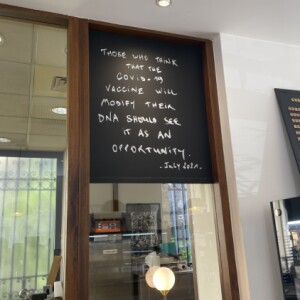 THOSE WHO THINK
THAT THE
COVID-19
VACCINE WILL
MODIFY THEIR
DNA SHOULD SEE
IT AS AN
OPPORTUNITY.
. July 2021.